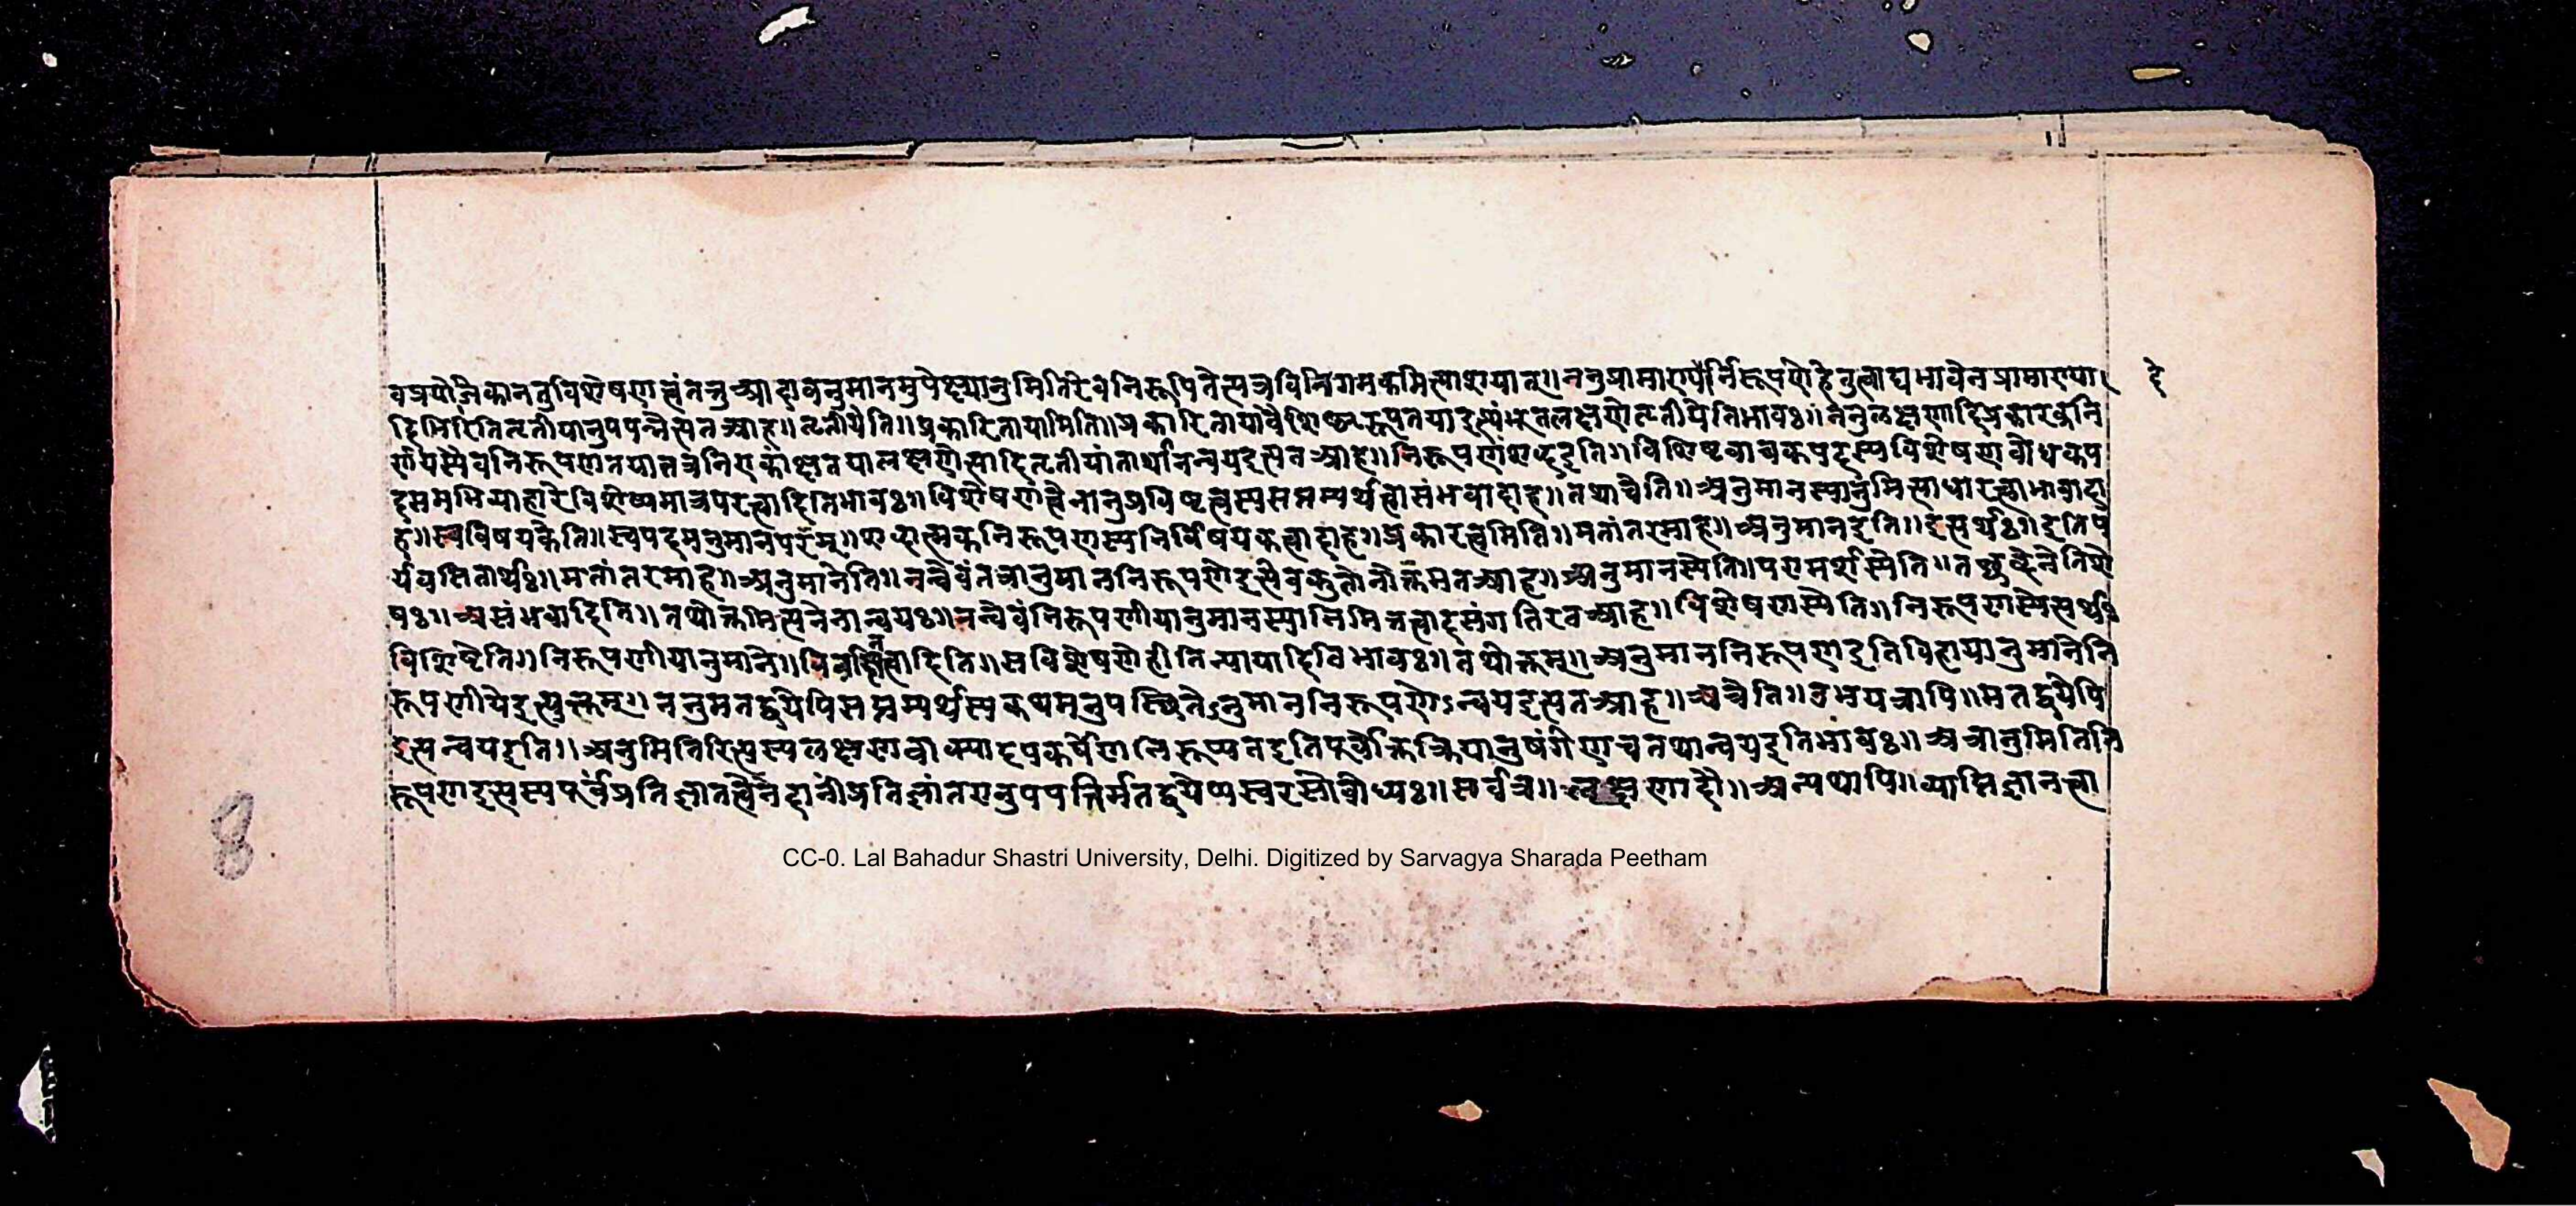 वप्रयोजकानतुविशेषणत्वंतत्रुआहावनुमानमुपेक्ष्यानुमितिरेवनिरूपितेत्यत्रविनिगमकमित्याशयात्॥ननुप्रामाण्यैर्निरूपणेहेतुत्वाद्यभावेनप्रामाण्या
दे
दिभिरितितृतीयानुपपन्नैत्यतआह॥तृतीयेति॥प्रकारितायामिति॥प्रकारितायावैशिष्ट्यरूपतयाइत्थंभूतलक्षणेतृतीयेतिभावः॥ननुलक्षणादिप्रकारकनि
र्णयस्यैवनिरूपणतयातत्रनिराकांक्षतयालक्षणेत्यादितृतीयांतार्थानन्वयइत्यतआह॥निरूपणंशब्दइति॥विशिष्टवाचकपदस्यविशेषणबोधकप
दसमभिव्याहारेविशेष्यमात्रपरत्वादितिभावः॥विशेषणत्वेनानुप्रविष्टत्वस्यसप्तम्यर्थत्वासंभवादाह॥तथाचेति॥अनुमानस्यानुमित्याधारत्वाभावादा
ह॥स्वविषयकेति॥स्वपदमनुमानपरम्॥शब्दात्मकनिरूपणस्यनिर्विषयकत्वादाह॥प्रकारत्वमिति॥मतांतरमाह॥अनुमानइति॥इत्यर्थः॥इतिप
र्यवसितार्थः॥मतांतरमाह॥अनुमानेति॥नन्वेवंतत्रानुमाननिरूपणेइत्येवकुतोनोक्तमतआह॥अनुमानस्येति॥परामर्शस्येति॥तच्छब्देनेतिशे
षः॥असंभवादिति॥तथोक्तमित्यनेनान्वयः॥नन्वेवंनिरूपणीयानुमानस्यानिमित्तत्वादसंगतिरतआह॥विशेषणस्येति॥निरूपणस्येत्यर्थः
विशिष्टेति॥निरूपणीयानुमाने॥विवक्षितत्वादिति॥सविशेषणेहीतिन्यायादितिभावः॥तथोक्तम्॥अनुमाननिरूपणइतिविहायानुमानेनि
रूपणीयेइत्युक्तम्॥ननुमतद्वयेपिसप्तम्यर्थस्यकथमनुपस्थितेऽनुमाननिरूपणेऽन्वयइत्यतआह॥अत्रेति॥उभयत्रापि॥मतद्वयेपि
इत्यन्वयइति॥अनुमितिरित्यस्यलक्षणवाक्यादपकर्षेणलेरूप्यतइतिपूर्वोक्तक्रियानुषंगेणचतथान्वयइतिभावः॥अत्रानुमितिनि
रूपणइत्यस्यपूर्वप्रतिज्ञातत्वेनेदानींप्रतिज्ञांतरानुपपत्तिर्मतद्वयेप्यस्वरसोबोध्यः॥सर्वत्र॥लक्षणादौ॥अन्यथापि॥व्याप्तिज्ञानत्वा
8
CC-0. Lal Bahadur Shastri University, Delhi. Digitized by Sarvagya Sharada Peetham